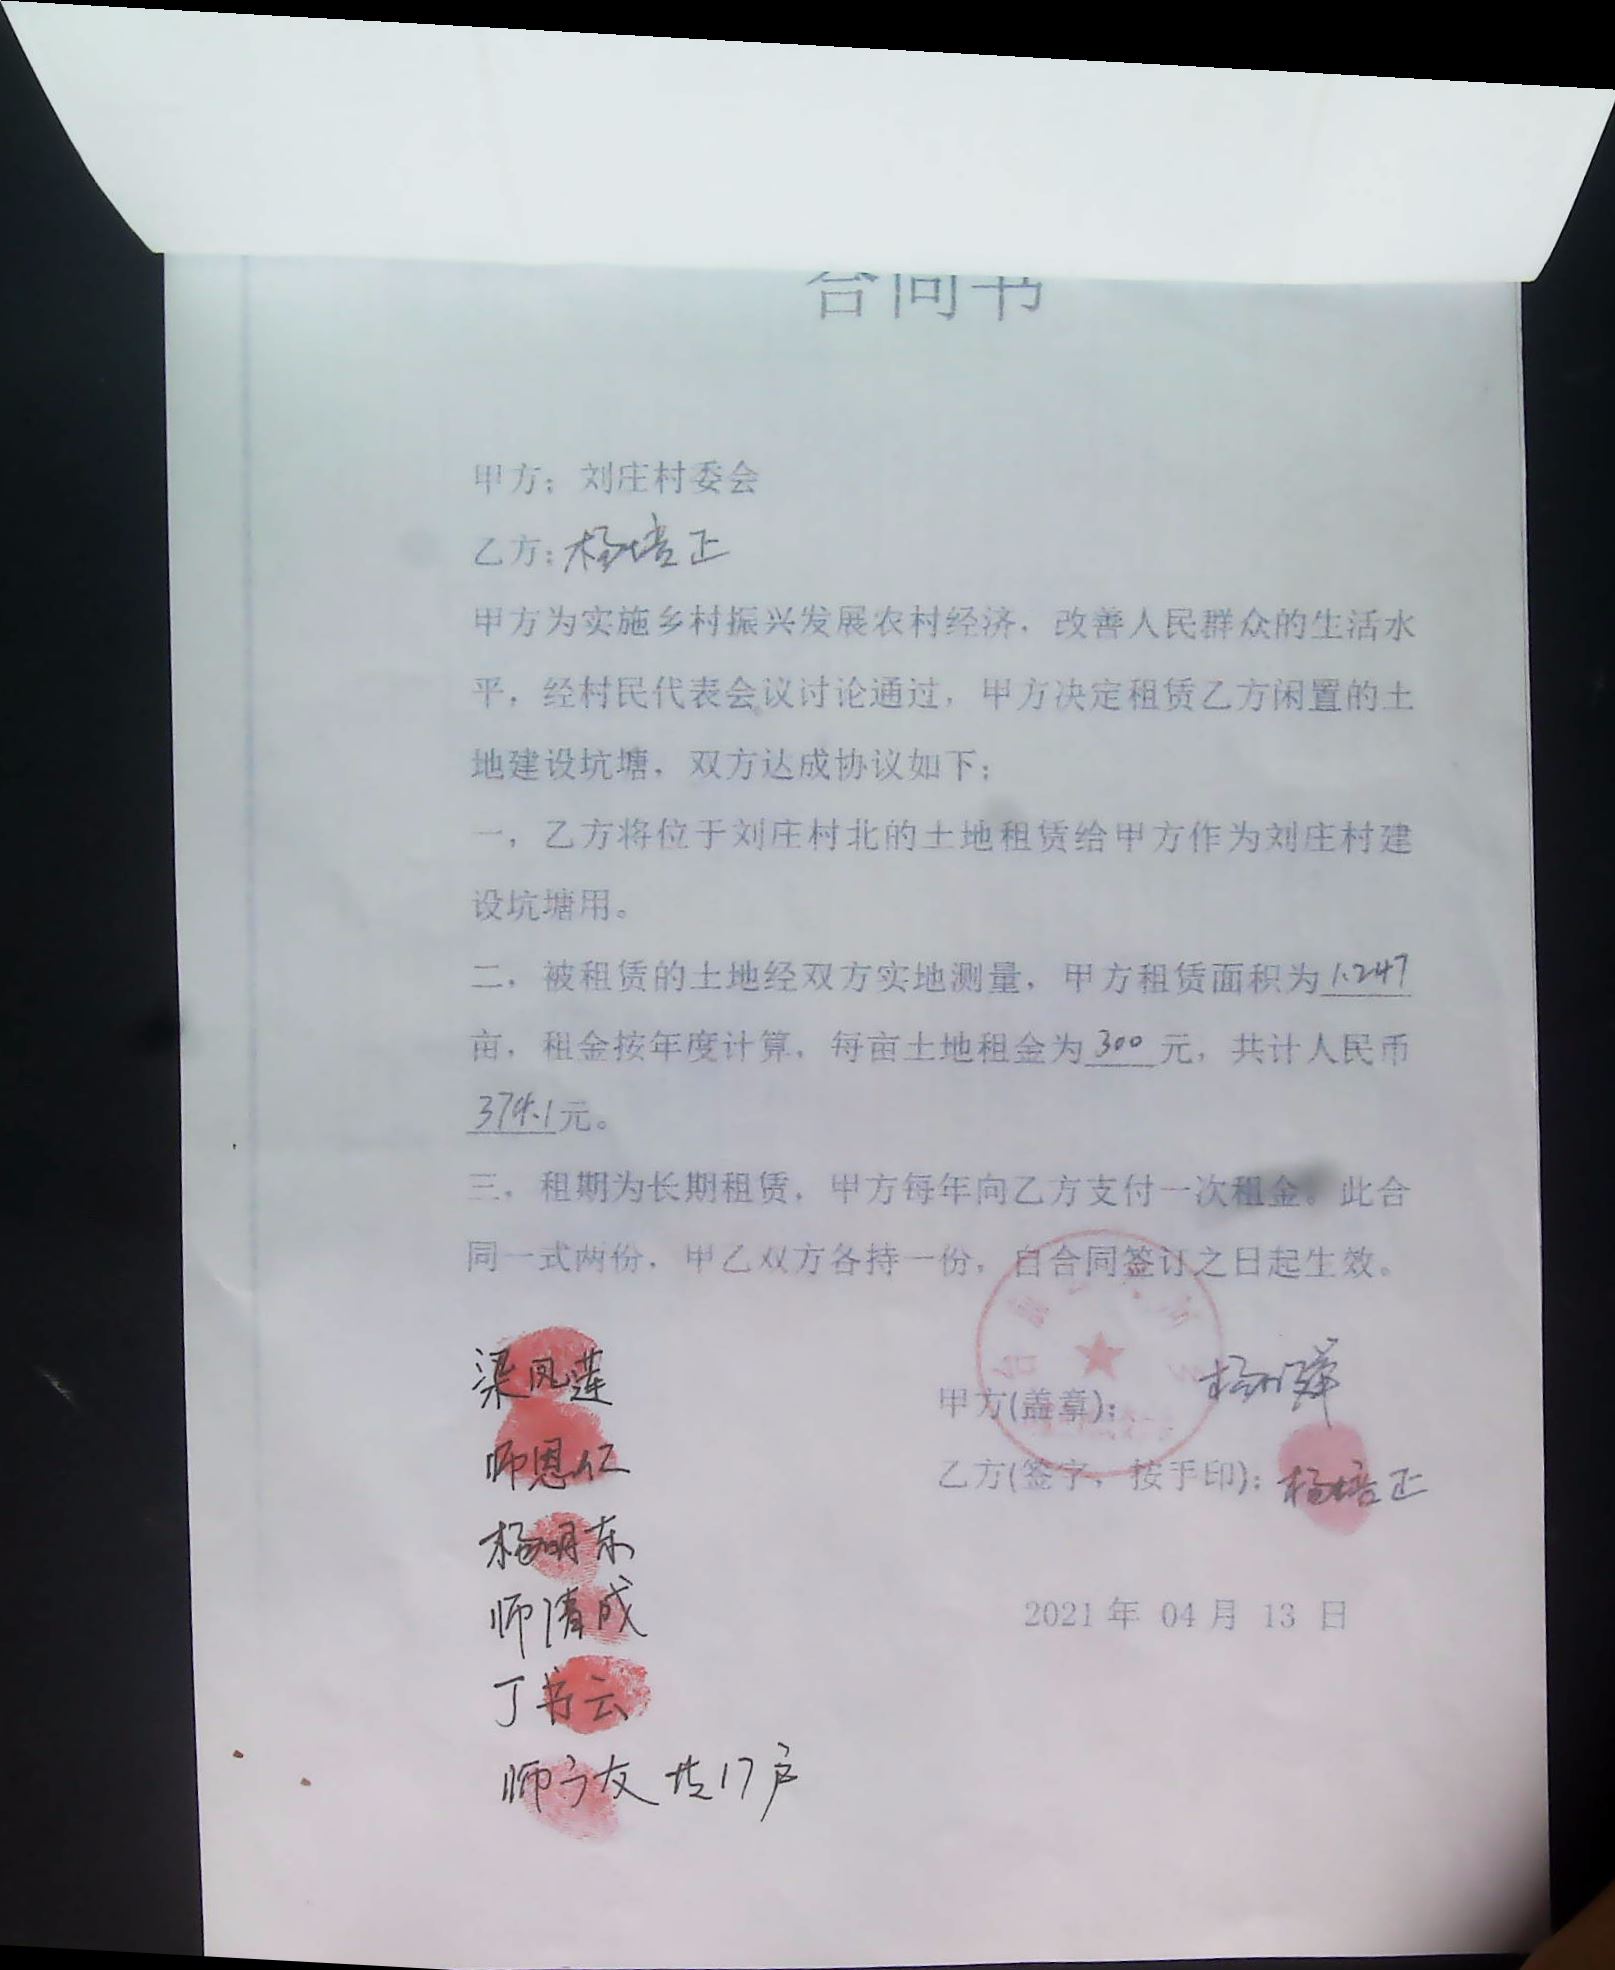 合同书
甲方：刘庄村委会
乙方：杨培正
甲方为实施乡村振兴发展农村经济，改善人民群众的生活水
平，经村民代表会议讨论通过，甲方决定租赁乙方闲置的土
地建设坑塘，双方达成协议如下：
一，乙方将位于刘庄村北的土地租赁给甲方作为刘庄村建
设坑塘用。
二，被租赁的土地经双方实地测量，甲方租赁面积为1.247
亩，租金按年度计算，每亩土地租金为300元，共计人民币
374.1元。
三，租期为长期租赁，甲方每年向乙方支付一次租金。此合
同一式两份，甲乙双方各持一份，自合同签订之日起生效。
梁凤莲
甲方(盖章)：
师恩仁
乙方(签字，按手印)：杨培正
杨明东
师清成
2021年 04月 13 日
丁书云
师友 共17户